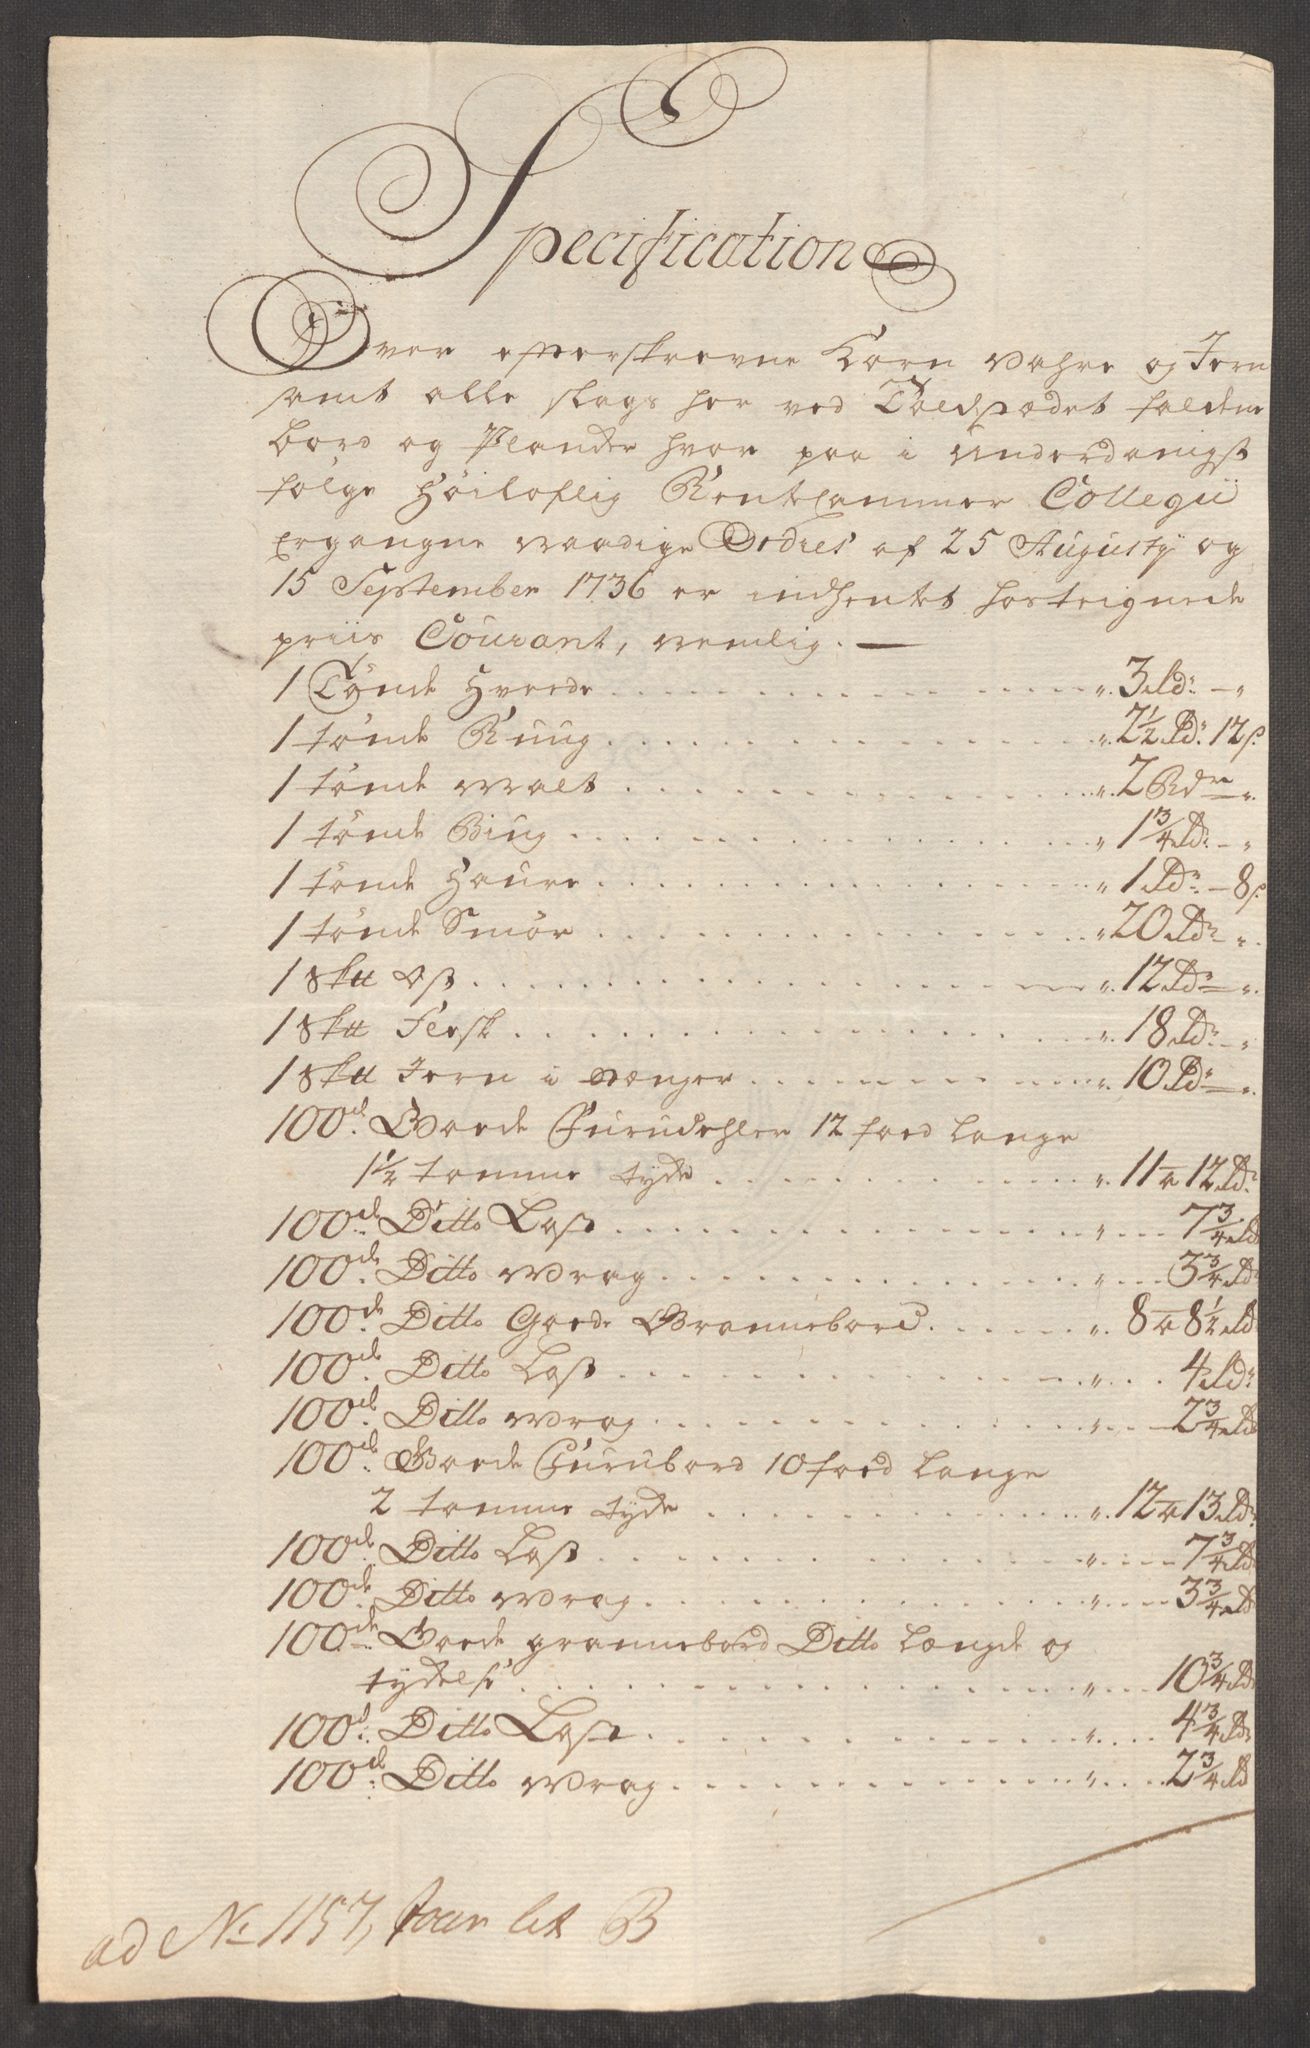 Specification
Over efterskrevne Korn Vahre og Jern
samt alle slags her ved Toldstædet faldene
bord og Plander hvor paa i Underdanigst
følge Høiloflig Rentecammer Collegii
Ergangne naadige Ordres af 25 Augusty og
15 September 1736 er indhentet hostegnede
priis Courant, nemlig. —
1 Tønde Hvede . . . „ 3 Rdr. — „
1 tønde Ruug . . . „ 2 1/2 Rdr. 12 s.
1 tønde Malt . . . „ 2 Rdr — „
1 tønde Biug . . . „ 1 3/4 Rdr. — „
1 tønde Haure . . . „ 1 Rdr. — 8 s.
1 tønde Smør . . . „ 20 Rdr — „
1 Sk℔ Ost . . . „ 12 Rdr — „
1 Sk℔ Flesk . . . „ 18 Rdr. — „
1 Sk℔ Jern i stænger . . . „ 10 Rdr — „
100de Goede Furudehler 12 foed lange
1 1/2 tomme tyde . . . „ 11 a 12 Rdr.
100de Ditto Last . . . „ 7 3/4 Rd
100de Ditto Wrag . . . „ 3 3/4 Rd
100de Ditto Goede Grannebord . . . „ 8 a 8 1/2 Rd
100de Ditto Last . . . „ 4 Rdr
100de Ditto Wrag . . . „ 2 3/4 Rd
100de Goede Furubord 10 foed lange
2 tomme tyde . . . „ 12 a 13 Rdr
100de Ditto Last . . . „ 7 3/4 Rd
100de Ditto Wrag . . . „ 3 3/4 Rd
100de Goede grannebord Ditto længde og
tydelse . . . „ 10 3/4 Rd
100de Ditto Last . . . „ 4 3/4 Rdr
100de Ditto Wrag . . . „ 2 3/4 Rd
ad No 1157, lit B